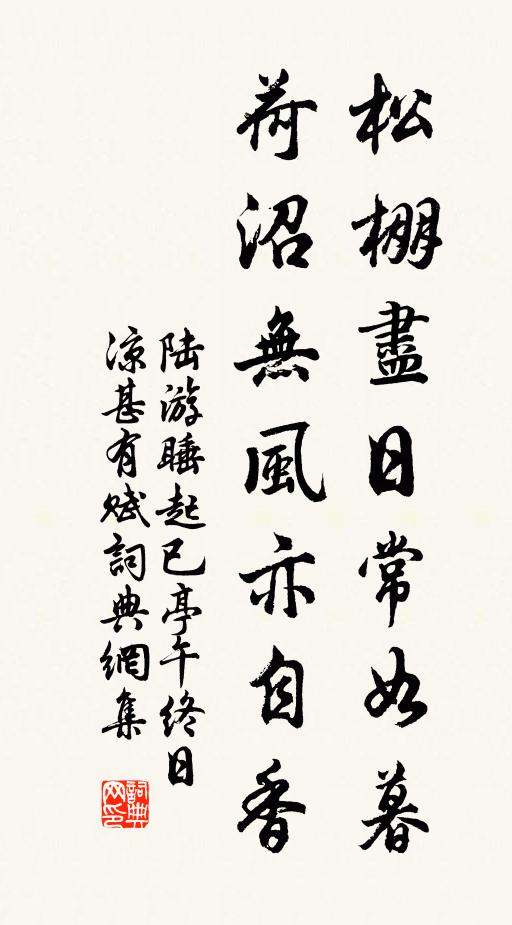 松棚盡日常如暮
荷沼無風亦自香
陆游睡起已亭午終日
凉甚有賦詞典網集
詞典网印